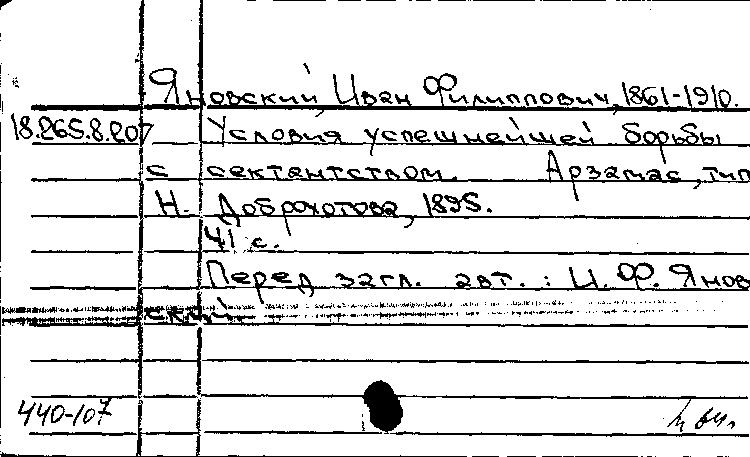 Яновский, Иван Филиппович, 1861-1910.
18.265.8.207 Условия успешнейшей борьбы
с сектантством. Арзамас, тип.
Н. Доброхотова, 1895.
41 с.
Перед загл. авт.: И. Ф. Янов
ский
440-107